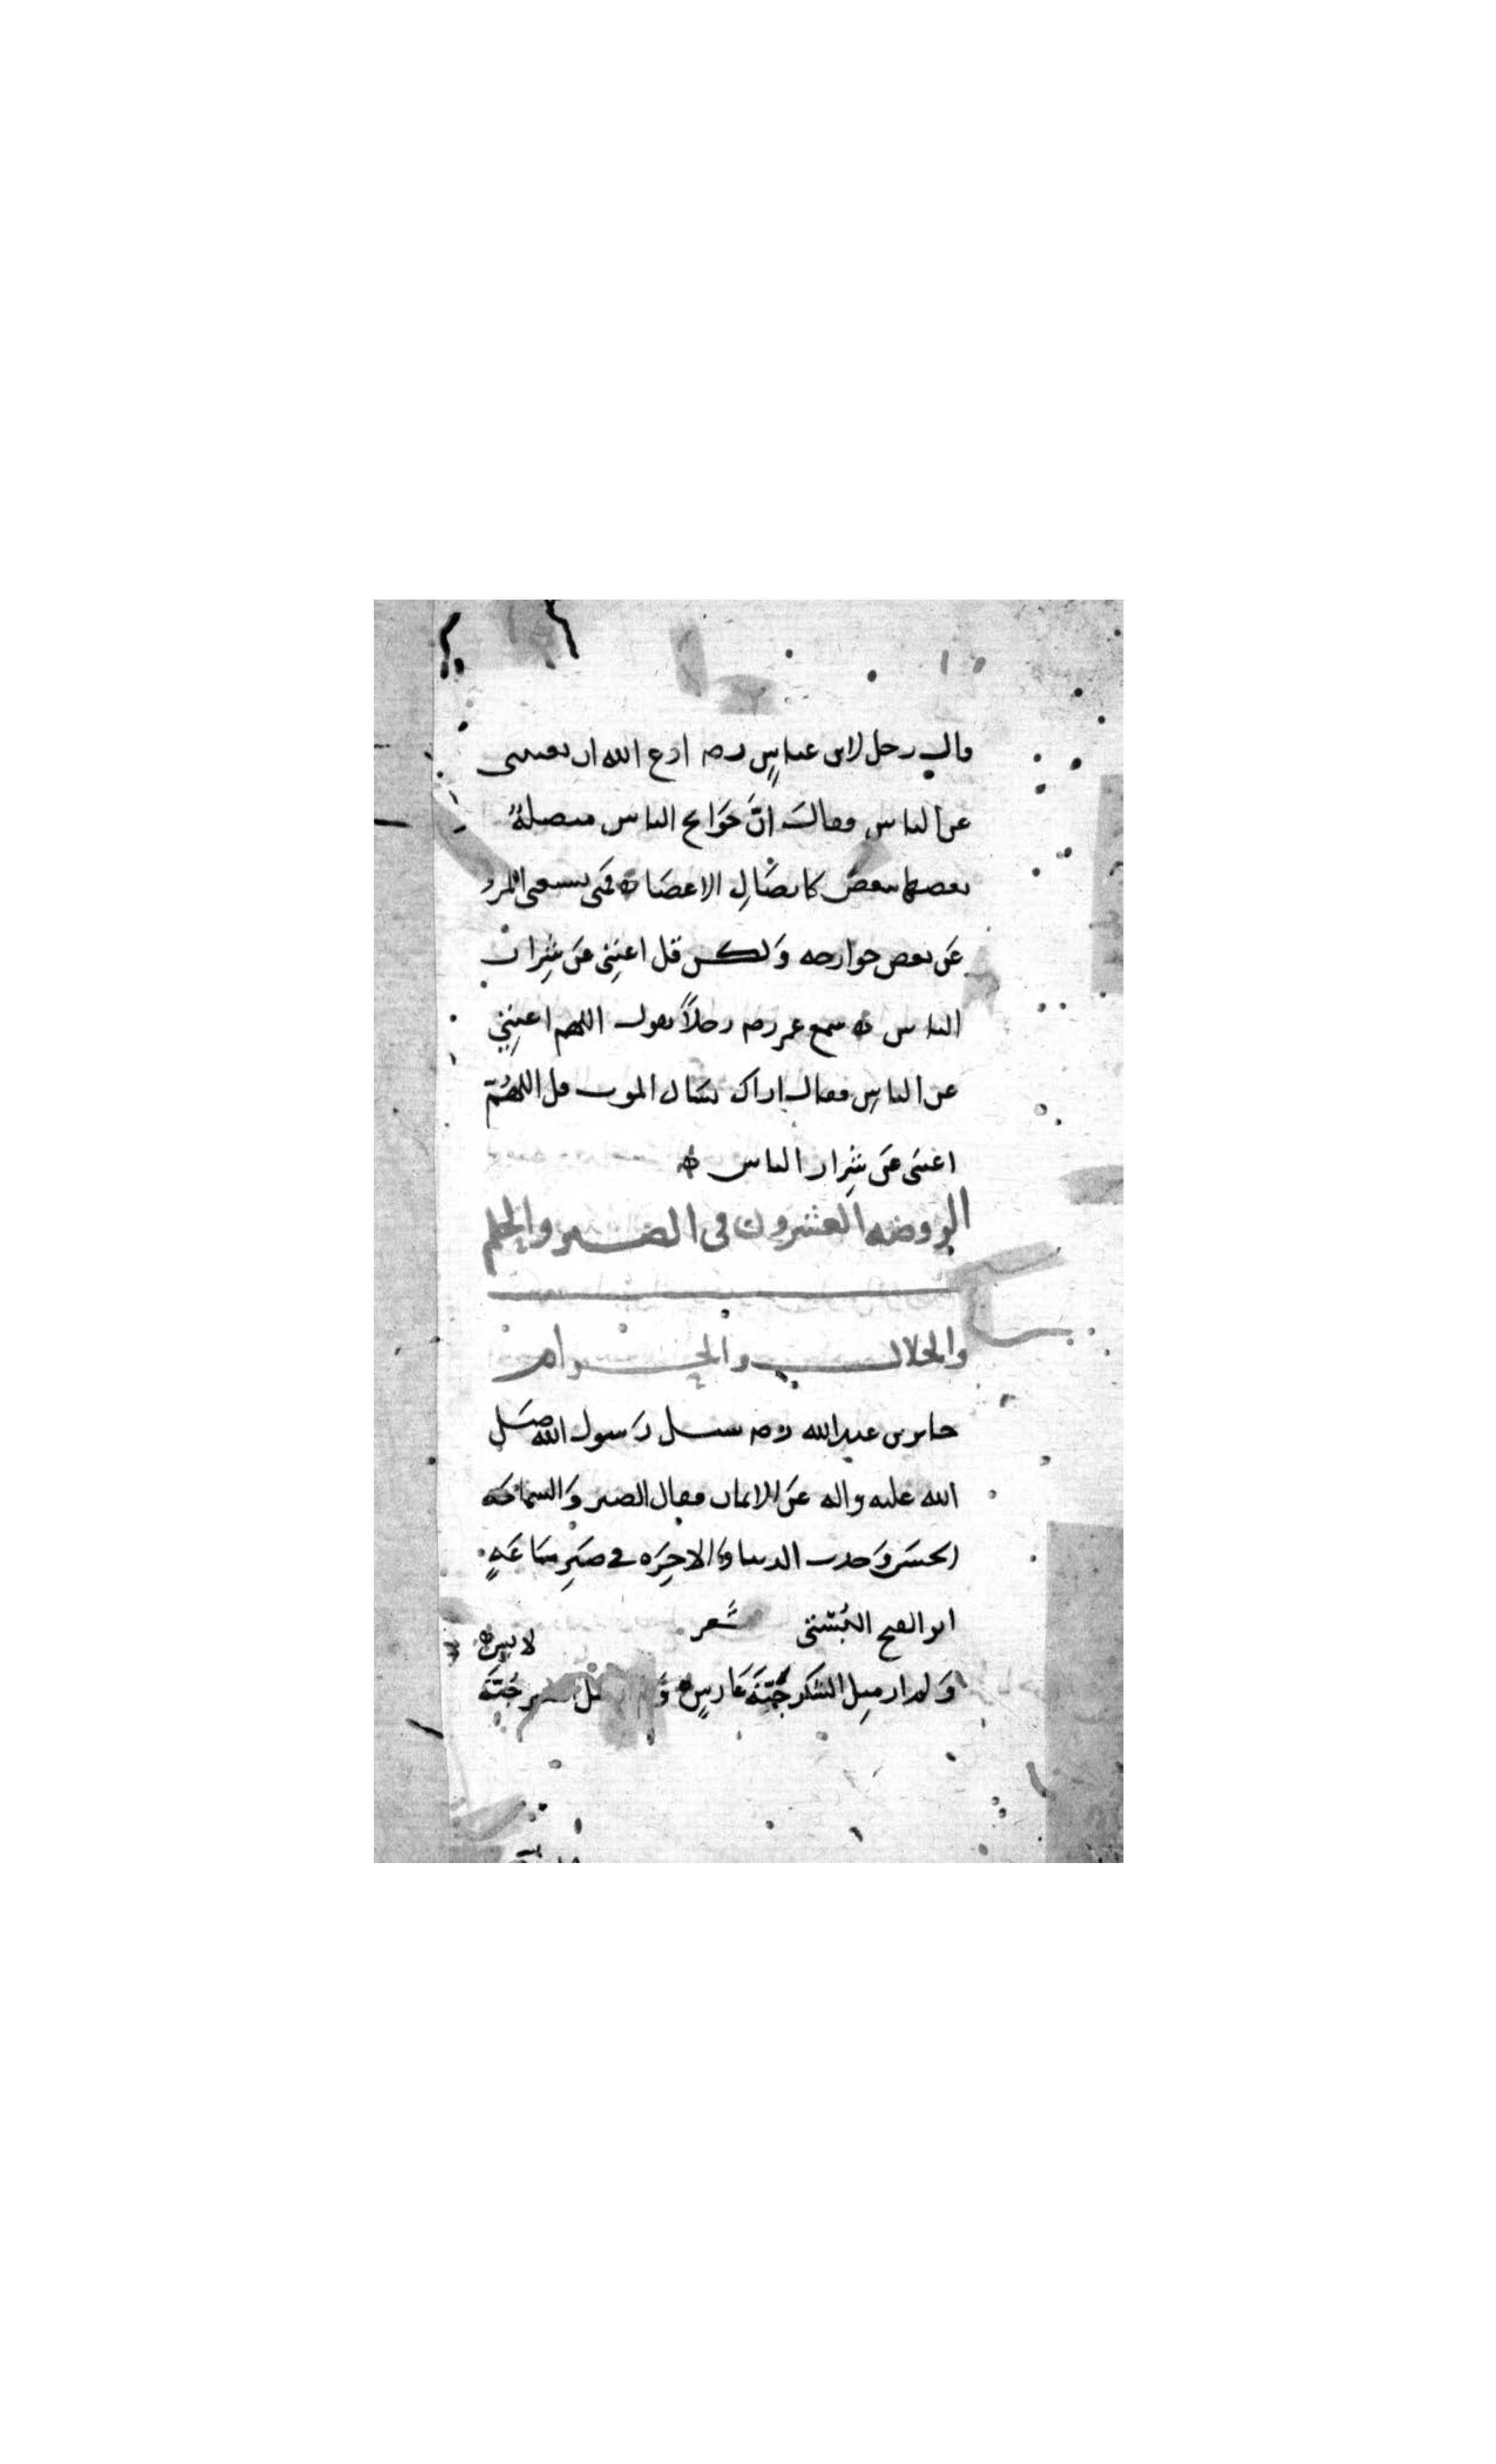 قال رجل لابن عباسٍ رضه ادع الله ان يغنينى
عن الناس فقال انَّ حَوَائج الناس متصلةٌ
بعضها ببعض كاتصَالِ الاعضَاء فمتى يستغنى المرء
عَن بعض جوارحه وَلكن قل اغنِنِى عَن شِرار
الناس سمع عمر رضه رجلاً يقول اللهم اغنِنِي
عن الناسِ فقال اراك تسَال الموت قل اللهُمّ
اغننى عَن شِرار الناس
الروضه العشرون فى الصبر والحلم
والحلال والحرام
جابر بن عبد الله رضه سئل رَسول الله صَلى
الله عليه واله عَن الايمان فقال الصبر وَالسماحَه
الحسَن وَجدت الدنيا وَالاخِرَه فى صَبرِ سَاعَهٍ
ابو الفتح البُستى شعر
وَلم ار مثل الشكر جُنّةَ غارسٍ وَلا مثل الصبر جُنّةَ
لابس